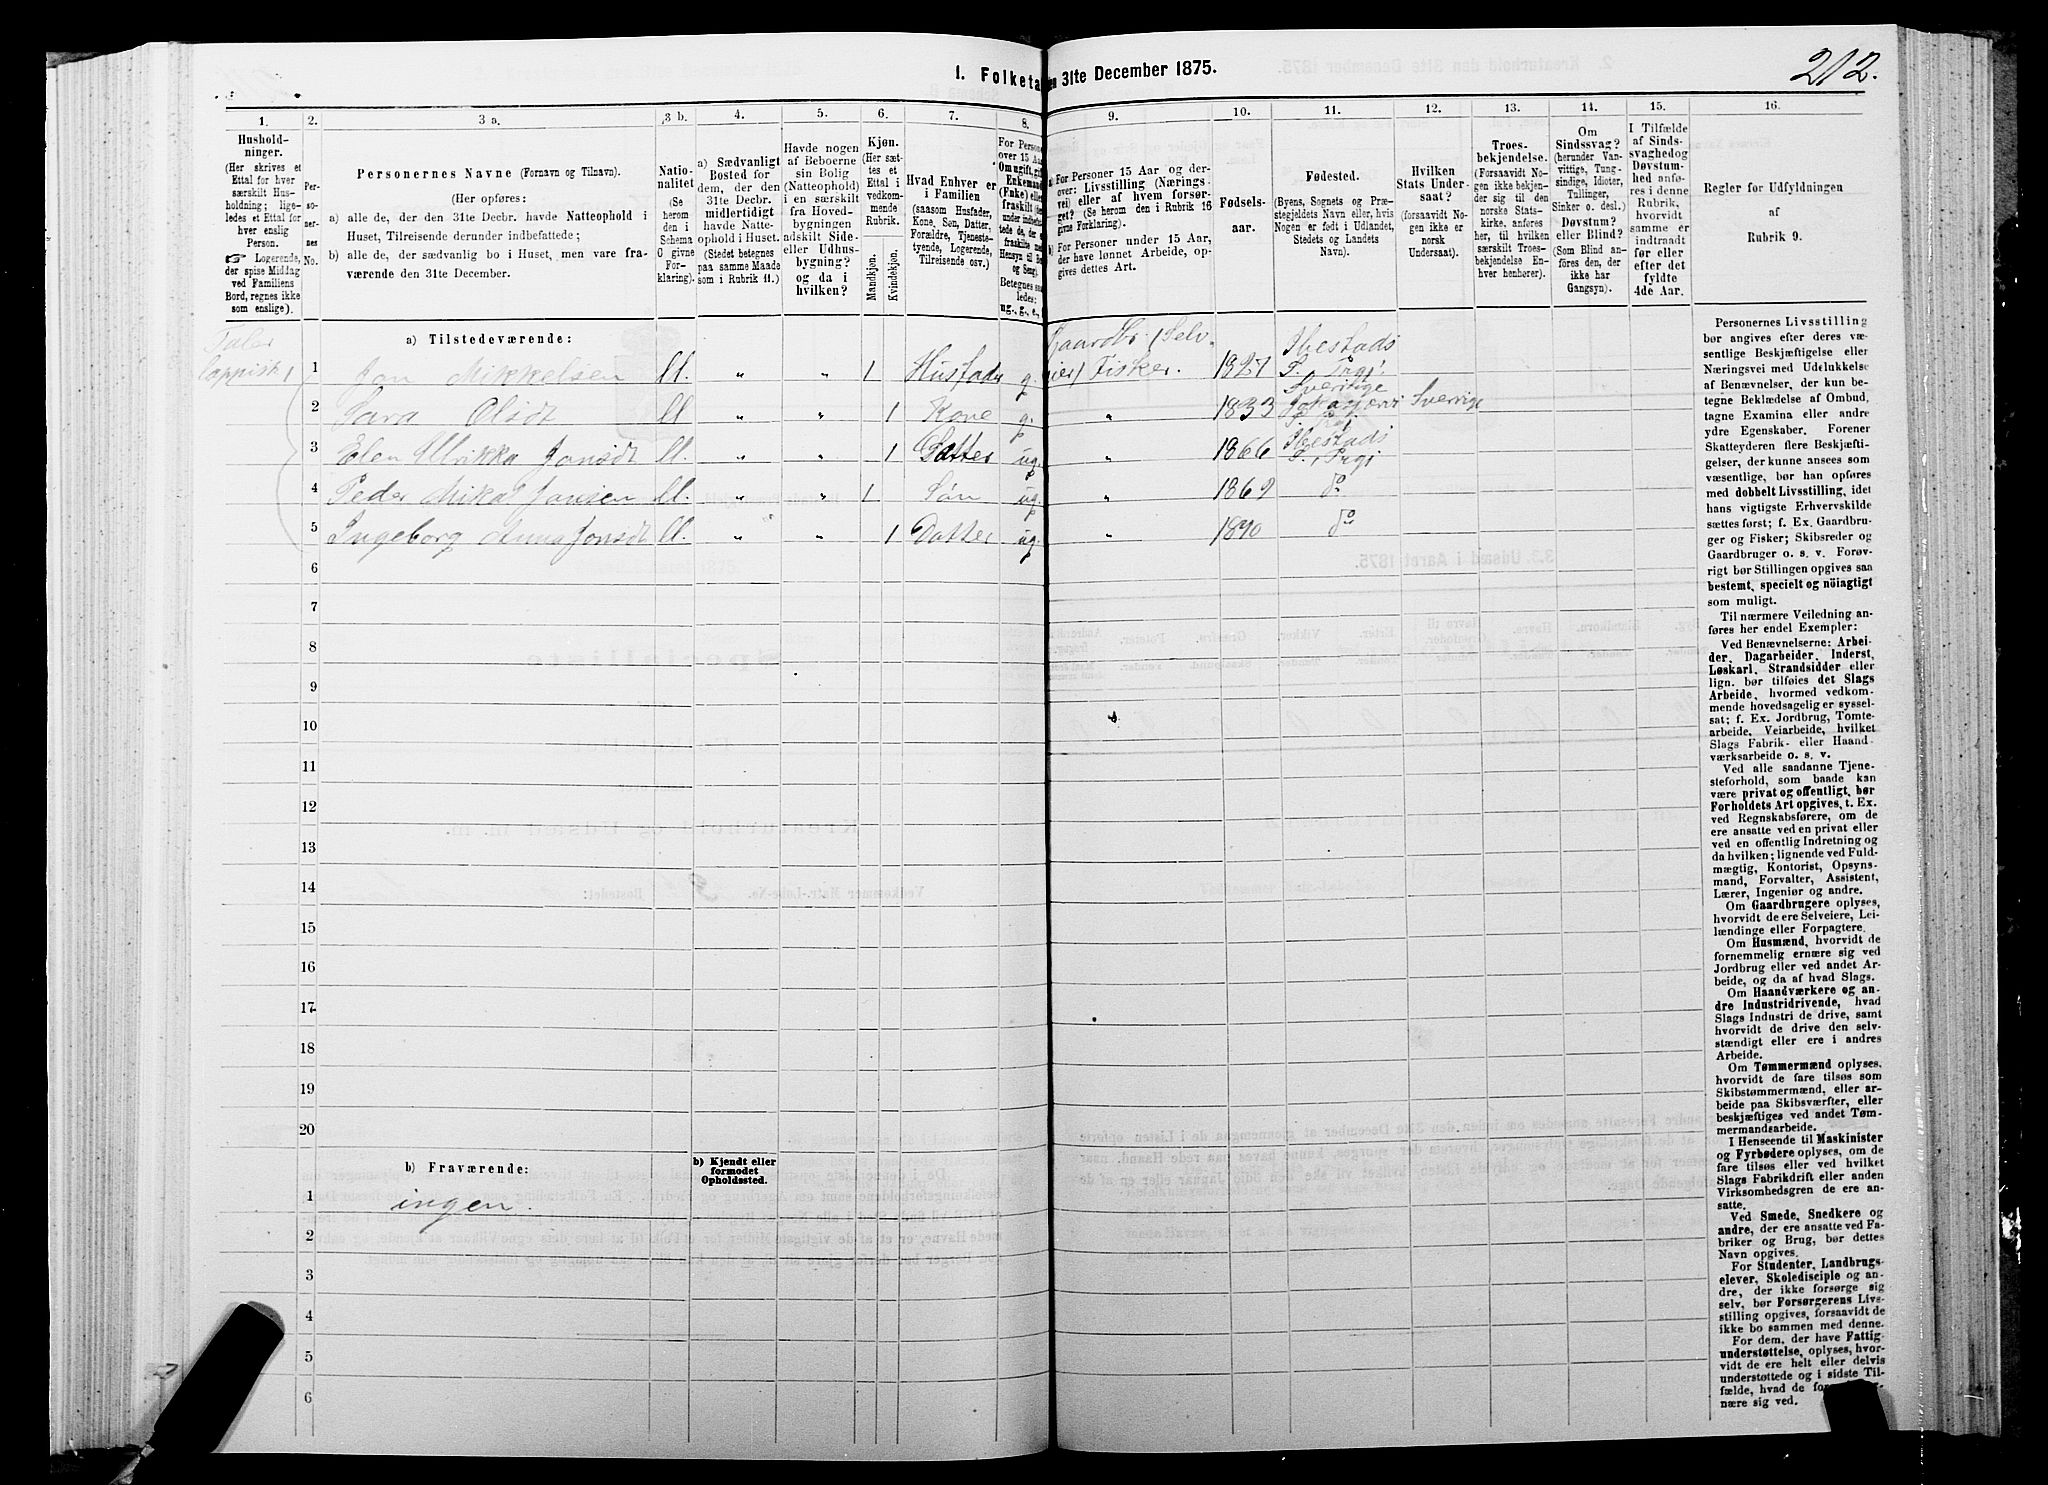 212.
1. Folketæ
en 31te December 1875.
1.
2.
3 a.
3 b.
4.
5.
6.
7.
8.
9.
10.
11.
12.
13.
14.
15.
16.
Hushold-
ninger.
(Her skrives et
Ettal for hver
særskilt Hus-
holdning; lige-
ledes et Ettal for
hver enslig
Person.
☞ Logerende,
der spise Middag
ved Familiens
Bord, regnes ikke
som enslige).
Per-
so-
ner-
nes
No.
Personernes Navne (Fornavn og Tilnavn).
(Her opføres:
a) alle de, der den 31te Decbr. havde Natteophold i
Huset, Tilreisende derunder indbefattede;
b) alle de, der sædvanlig bo i Huset, men vare fra-
værende den 31te December.
Natio-
nalitet
(Se
herom
den i
Schema
C givne
For-
klaring).
a) Sædvanligt
Bosted for
dem, der den
31te Decbr.
midlertidigt
havde Natte-
ophold i Huset.
(Stedet betegnes
paa samme Maade
som i Rubrik 11.)
Havde nogen
af Beboerne
sin Bolig
(Natteophold)
i en særskilt
fra Hoved-
bygningen
adskilt Side-
eller Udhus-
bygning?
og da i
hvilken?
Kjøn.
(Her sæt-
tes et
Ettal i
vedkom-
mende
Rubrik.
Mandkjøn.
Kvindekjøn.
Hvad Enhver er
i Familien
(saasom Husfader,
Kone, Søn, Datter,
Forældre, Tjeneste-
tyende, Logerende,
Tilreisende osv.)
For Person
over 15 Aar
Om ugift, gift
Enkemand
(Enke) eller
fraskilt
Betegnes saa-
ledes:
ug., g., e.,
a) For Personer 15 Aar og der-
over: Livsstilling (Nærings-
vei) eller af hvem forsør-
get? (Se herom den i Rubrik 16
givne Forklaring).
b) For Personer under 15 Aar,
der have lønnet Arbeide, op-
gives dettes Art.
Fødsels-
aar.
Fødested.
(Byens, Sognets og Præ-
stegjeldets Navn eller, hvis
Nogen er født i Udlandet,
Stedets og Landets
Navn).
Hvilken
Stats Under-
saat?
(forsaavidt No-
gen ikke er
norsk
Undersaat).
Troes-
bekjendelse.
(Forsaavidt No-
gen ikke bekjen-
der sig til den
norske Stats-
kirke, anføres
her, til hvilken
særskilt Troes-
bekjendelse En-
hver henhører).
Om
Sindssvag?
(herunder Van-
vittige, Tung-
sindige, Idioter,
Tullinger,
Sinker o. desl.)
Døvstum?
eller Blind?
(Som Blind an-
føres den, der
ikke har
Gangsyn).
I Tilfælde
af Sinds-
svaghed og
Døvstum-
hed anfø-
res i denne
Rubrik,
hvorvidt
samme er
indtraadt
før eller
efter det
fyldte
4de Aar.
Regler for Udfyldningen
af
Rubrik 9.
a) Tilstedeværende:
Taler
lappisk 1
1 Jon Mikkelsen „ „ 1 Husfader g. Gaardbr. (Selv-
eier) Fisker. 1827 Ibestads
S. Prgj.
2 Sara Olsdt „ „ 1 Kone g. „ 1833 Sverige Sverrige
3 Elen Ulrikka Jonsdt „ „ 1 Datter ug. „ 1866 Ibestads
S., Prgj
4 Peder Mikal Jonsen „ „ 1 Søn ug. „ 1869 do
5 Ingeborg Anna Jonsdt „ „ 1 Datter ug. „ 1870 do
6
7
8
9
10
11
12
13
14
15
16
17
18
19
20
b) Fraværende:
b) Kjendt eller
formodet
Opholdssted.
1 ingen.
2
3
4
5
6
Personernes Livsstilling
bør angives efter deres væ-
sentlige Beskjæftigelse eller
Næringsvei med Udelukkelse
af Benævnelser, der kun be-
tegne Beklædelse af Ombud,
tagne Examina eller andre
ydre Egenskaber. Forener
Skatteyderen flere Beskjæfti-
gelser, der kunne ansees som
væsentlige, bør han opføres
med dobbelt Livsstilling, idet
hans vigtigste Erhvervskilde
sættes først; f. Ex. Gaardbru-
ger og Fisker; Skibsreder og
Gaardbruger o. s. v. Forøv-
rigt bør Stillingen opgives saa
bestemt, specielt og nöiagtigt
som muligt.
Til nærmere Veiledning an-
føres her endel Exempler:
Ved Benævnelserne: Arbei-
der, Dagarbeider, Inderst,
Løskarl, Strandsidder eller
lign. bør tilføies det Slags
Arbeide, hvormed vedkom-
mende hovedsagelig er syssel-
sat; f. Ex. Jordbrug, Tomte-
arbeide, Veiarbeide, hvilket
Slags Fabrik- eller Haand-
værksarbeide o. s. v.
Ved alle saadanne Tjene-
steforhold, som baade kan
være privat og offentligt, bør
Forholdets Art opgives, t. Ex.
ved Regnskabsførere, om de
ere ansatte ved en privat eller
ved en offentlig Indretning og
da hvilken; lignende ved Fuld-
mægtig, Kontorist, Opsyns-
mand, Forvalter, Assistent,
Lærer, Ingeniør og andre.
Om Gaardbrugere oplyses,
hvorvidt de ere Selveiere, Lei-
lændinge eller Forpagtere.
Om Husmænd, hvorvidt de
fornemmelig ernære sig ved
Jordbrug eller ved andet Ar-
beide, og da af hvad Slags.
Om Haandværkere og an-
dre Industridrivende, hvad
Slags Industri de drive, samt
hvorvidt de drive den selv-
stændigt eller ere i andres
Arbeide.
Om Tømmermænd oplyses,
hvorvidt de fare tilsøs som
Skibstømmermænd, eller ar-
beide paa Skibsværfter, eller
beskjæftiges ved andet Tøm-
mermandsarbeide.
I Henseende til Maskinister
og Fyrbødere oplyses, om de
fare tilsøs eller ved hvilket
Slags Fabrikdrift eller anden
Virksomhedsgren de ere an-
satte.
Ved Smede, Snedkere og
andre, der ere ansatte ved Fa-
briker og Brug, bør dettes
Navn opgives.
For Studenter, Landbrugs-
elever, Skoledisciple og an-
dre, der ikke forsørge sig
selv, bør Forsørgerens Livs-
stilling opgives, forsaavidt de
ikke bo sammen med denne.
For dem, der have Fattig-
understøttelse, oplyses, hvor-
vidt de ere helt eller delvis
understøttede og i sidste Til-
fælde, hvad de
nære sig ved.